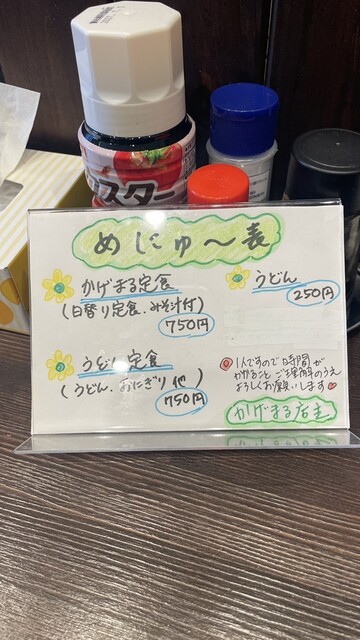 スター
めにゅ〜表
かげまる定食
(日替り定食、みそ汁付)
750円
うどん定食
(うどん、おにぎり他)
750円
うどん
250円
1人ですので時間が
かかること ご理解のうえ
よろしくお願いします
かげまる店主